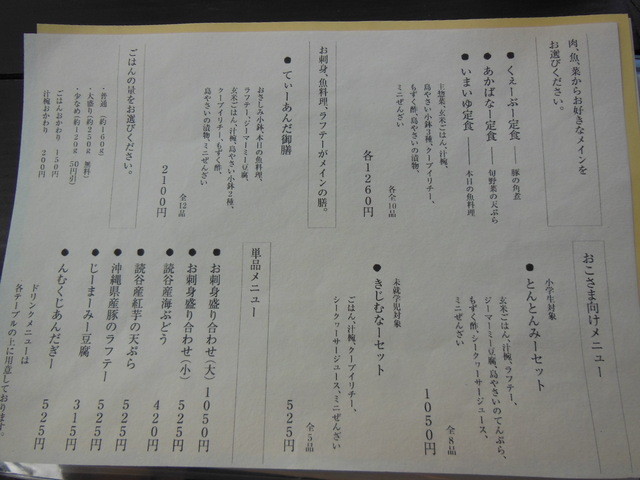 肉、魚、菜からお好きなメインを
お選びください。
● くぇーぶー定食 ―― 豚の角煮
● あかばなー定食 ―― 旬野菜の天ぷら
● いまいゆ定食 ―― 本日の魚料理
主惣菜、玄米ごはん、汁椀、
島やさい小鉢3種、クーブイリチー、
もずく酢、島やさいの漬物、
ミニぜんざい
各全10品
各1260円
お刺身、魚料理、ラフテーがメインの膳。
● てぃーあんだ御膳
おさしみ小鉢、本日の魚料理、
ラフテー、ジーマーミー豆腐、
玄米ごはん、汁椀、島やさい小鉢2種、
クーブイリチー、もずく酢、
島やさいの漬物、ミニぜんざい
全12品
2100円
ごはんの量をお選びください。
・普通 （約160g）
・大盛り（約250g 無料）
・少なめ（約120g 50円引）
ごはんおかわり 150円
汁椀おかわり 200円
おこさま向けメニュー
小学生対象
● とんとんみーセット
玄米ごはん、汁椀、ラフテー、
ジーマーミー豆腐、島やさいのてんぷら、
もずく酢、シークヮーサージュース、
ミニぜんざい
全8品
1050円
未就学児対象
● きじむなーセット
ごはん、汁椀、クーブイリチー、
シークヮーサージュース、ミニぜんざい
全5品
525円
単品メニュー
● お刺身盛り合わせ（大） 1050円
● お刺身盛り合わせ（小） 525円
● 読谷産海ぶどう 420円
● 読谷産紅芋の天ぷら 525円
● 沖縄県産豚のラフテー 525円
● じーまーみー豆腐 315円
● んむくじあんだぎー 525円
ドリンクメニューは
各テーブルの上に用意しております。